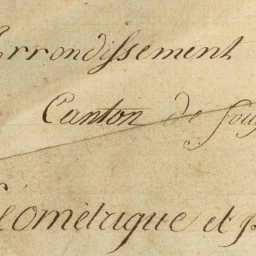 Arrondissement
Canton de foug
Géométrique et p